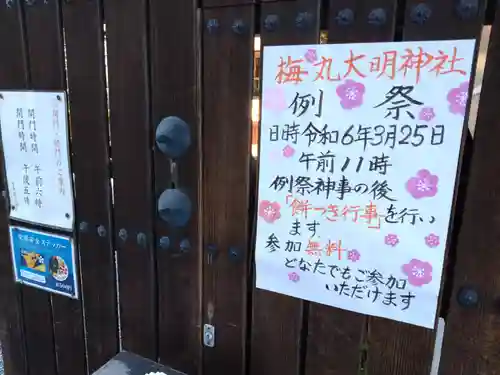 開門・閉門のご案内
開門時間　午前六時
閉門時間　午後五時
梅丸大明神社
例　祭
日時令和6年3月25日
午前11時
例祭神事の後
「餅つき行事」を行い
ます
参加無料
どなたでもご参加
いただけます